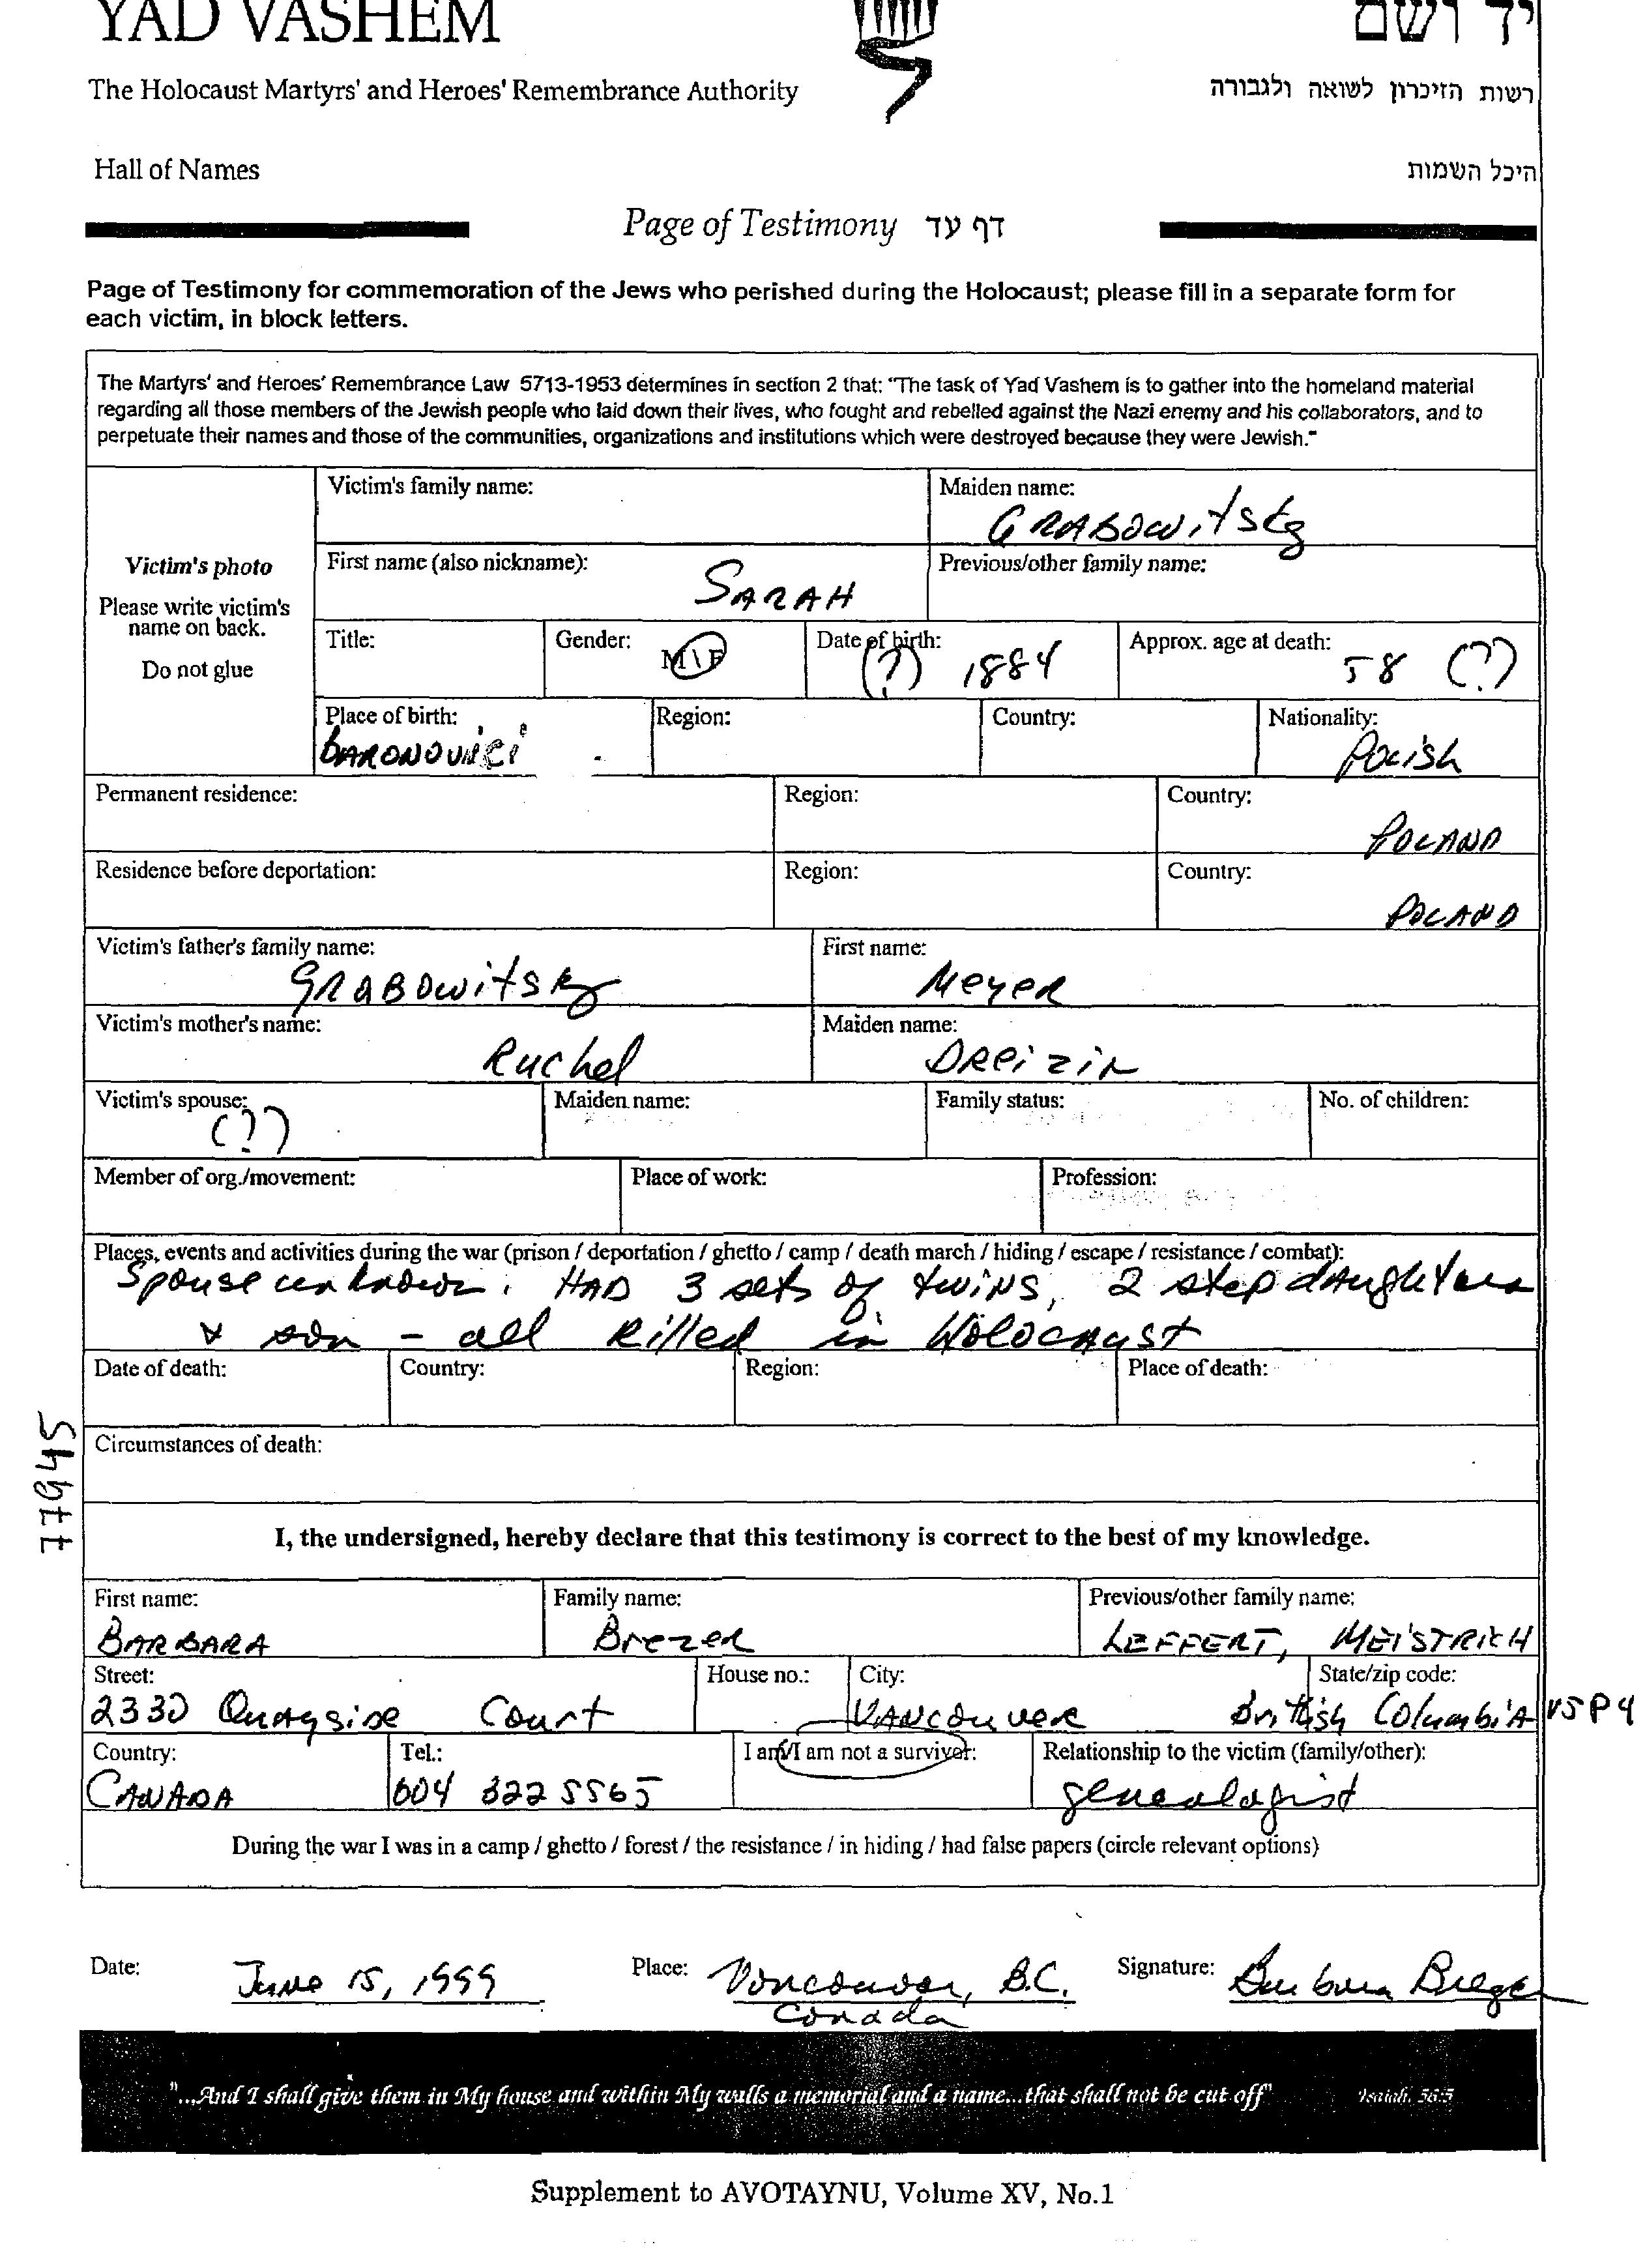 YAD VASHEM
יד ושם
The Holocaust Martyrs' and Heroes' Remembrance Authority
רשות הזיכרון לשואה ולגבורה
Hall of Names
היכל השמות
Page of Testimony דף עד
Page of Testimony for commemoration of the Jews who perished during the Holocaust; please fill in a separate form for
each victim, in block letters.
The Martyrs' and Heroes' Remembrance Law 5713-1953 determines in section 2 that: "The task of Yad Vashem is to gather into the homeland material
regarding all those members of the Jewish people who laid down their lives, who fought and rebelled against the Nazi enemy and his collaborators, and to
perpetuate their names and those of the communities, organizations and institutions which were destroyed because they were Jewish."
Victim's photo
Please write victim's
name on back.
Do not glue
Victim's family name:
Maiden name:
GRABOWitsky
First name (also nickname):
SARAH
Previous/other family name:
Title:
Gender:
M\F
Date of birth:
(?) 1884
Approx. age at death:
58 (?)
Place of birth:
BARONOVICI
Region:
Country:
Nationality:
POLISH
Permanent residence:
Region:
Country:
POLAND
Residence before deportation:
Region:
Country:
POLAND
Victim's father's family name:
GRABOWitsky
First name:
Meyer
Victim's mother's name:
Ruchel
Maiden name:
DReizin
Victim's spouse:
(?)
Maiden name:
Family status:
No. of children:
Member of org./movement:
Place of work:
Profession:
Places, events and activities during the war (prison / deportation / ghetto / camp / death march / hiding / escape / resistance / combat):
Spouse unknown. HAD 3 sets of twins, 2 step daughters
& son - all killed in Holocaust
Date of death:
Country:
Region:
Place of death:
Circumstances of death:
77645
I, the undersigned, hereby declare that this testimony is correct to the best of my knowledge.
First name:
BARBARA
Family name:
Brezer
Previous/other family name:
LEFFERT, MEISTRICH
Street:
2330 Quayside Court
House no.:
City:
VANCOUVER
State/zip code:
British Columbia V5P4
Country:
CANADA
Tel.:
604 322 5565
I am/I am not a survivor:
Relationship to the victim (family/other):
genealogist
During the war I was in a camp / ghetto / forest / the resistance / in hiding / had false papers (circle relevant options)
Date:
June 15, 1999
Place:
Vancouver, B.C.
Canada
Signature:
Barbara Brezer
"...And I shall give them in My house and within My walls a memorial and a name...that shall not be cut off" Isaiah, 56:5
Supplement to AVOTAYNU, Volume XV, No.1